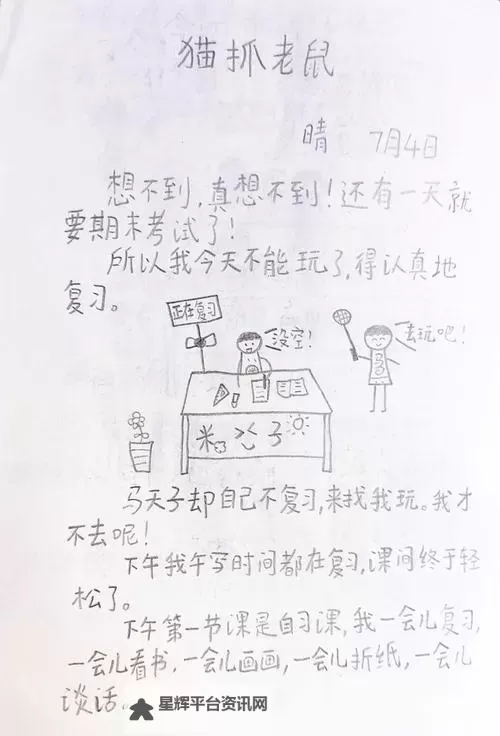 猫抓老鼠
晴 7月4日
想不到,真想不到!还有一天就
要期末考试了!
所以我今天不能玩了,得认真地
复习。
正在复习
没空!
去玩吧!
米 子
马天子却自己不复习,来找我玩。我才
不去呢!
下午我午写时间都在复习,课间终于轻
松了。
下午第一节课是自习课,我一会儿复习,
一会儿看书,一会儿画画,一会儿折纸,一会儿
谈话
星辉平台资讯网